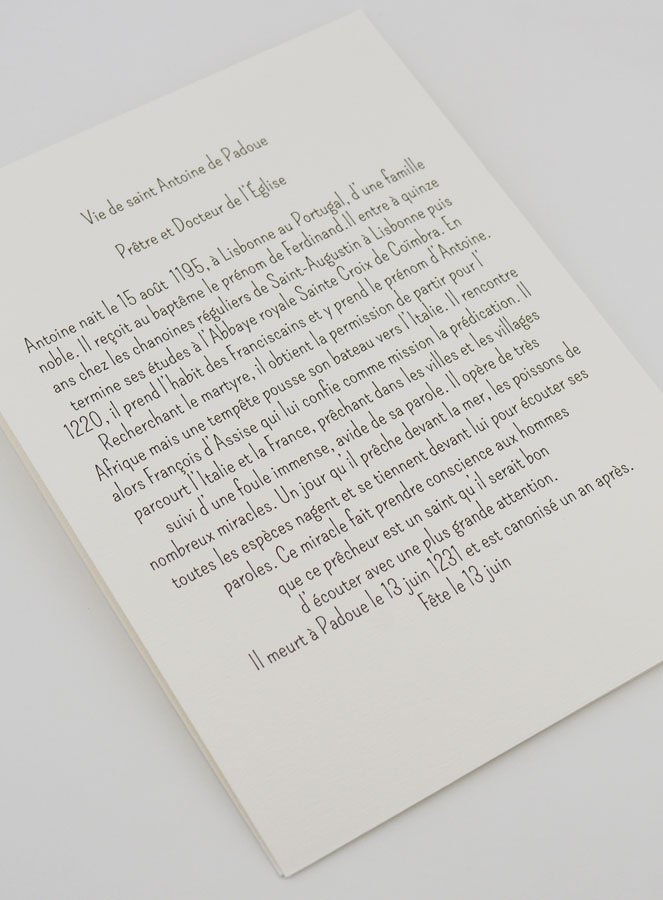 Vie de saint Antoine de Padoue
Prêtre et Docteur de l'Église
Antoine nait le 15 août 1195, à Lisbonne au Portugal, d'une famille
noble. Il reçoit au baptême le prénom de Ferdinand.Il entre à quinze
ans chez les chanoines réguliers de Saint-Augustin à Lisbonne puis
termine ses études à l'Abbaye royale Sainte Croix de Coimbra. En
1220, il prend l'habit des Franciscains et y prend le prénom d'Antoine.
Recherchant le martyre, il obtient la permission de partir pour l'
Afrique mais une tempête pousse son bateau vers l'Italie. Il rencontre
alors François d'Assise qui lui confie comme mission la prédication. Il
parcourt l'Italie et la France, prêchant dans les villes et les villages
suivi d'une foule immense, avide de sa parole. Il opère de très
nombreux miracles. Un jour qu'il prêche devant la mer, les poissons de
toutes les espèces nagent et se tiennent devant lui pour écouter ses
paroles. Ce miracle fait prendre conscience aux hommes
que ce prêcheur est un saint qu'il serait bon
d'écouter avec une plus grande attention.
Il meurt à Padoue le 13 juin 1231 et est canonisé un an après.
Fête le 13 juin